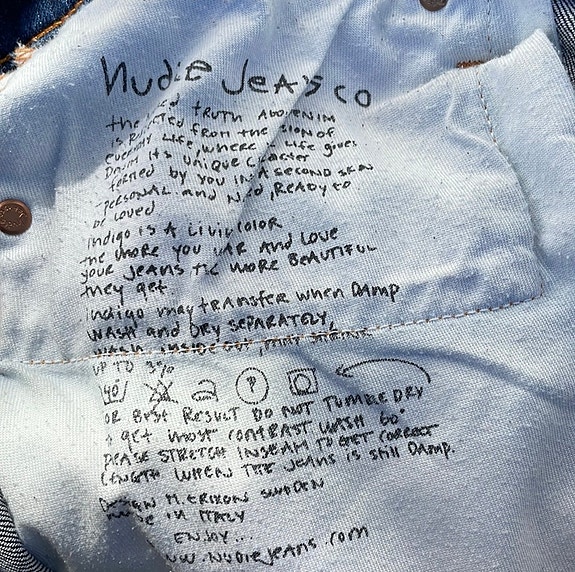 Nudie Jeans co
the truth About DENIM
is from the sign of
everyday Life, where Life gives
Denim its unique character
formed by you IN A second skin
personal and Nud, Ready to
be loved
indigo is A Livin COLOR
the more you and Love
your Jeans the MORE BEAUTIFUL
they get
indigo may transfer when Damp
WASH and DRY SEPARATELY,
WASH inside out, may shrink
UP TO 3%
40°
P
OR BEST RESULT DO NOT TUMBLE DRY
get most CONTRAST WASH 60°
PLEASE STRETCH INSEAM TO GET CORRECT
LENGTH WHEN THE Jeans is still DAMP.
DESIGN M. ERIXON SWEDEN
MADE IN ITALY
ENJOY...
WW.NUDIEJEANS.COM